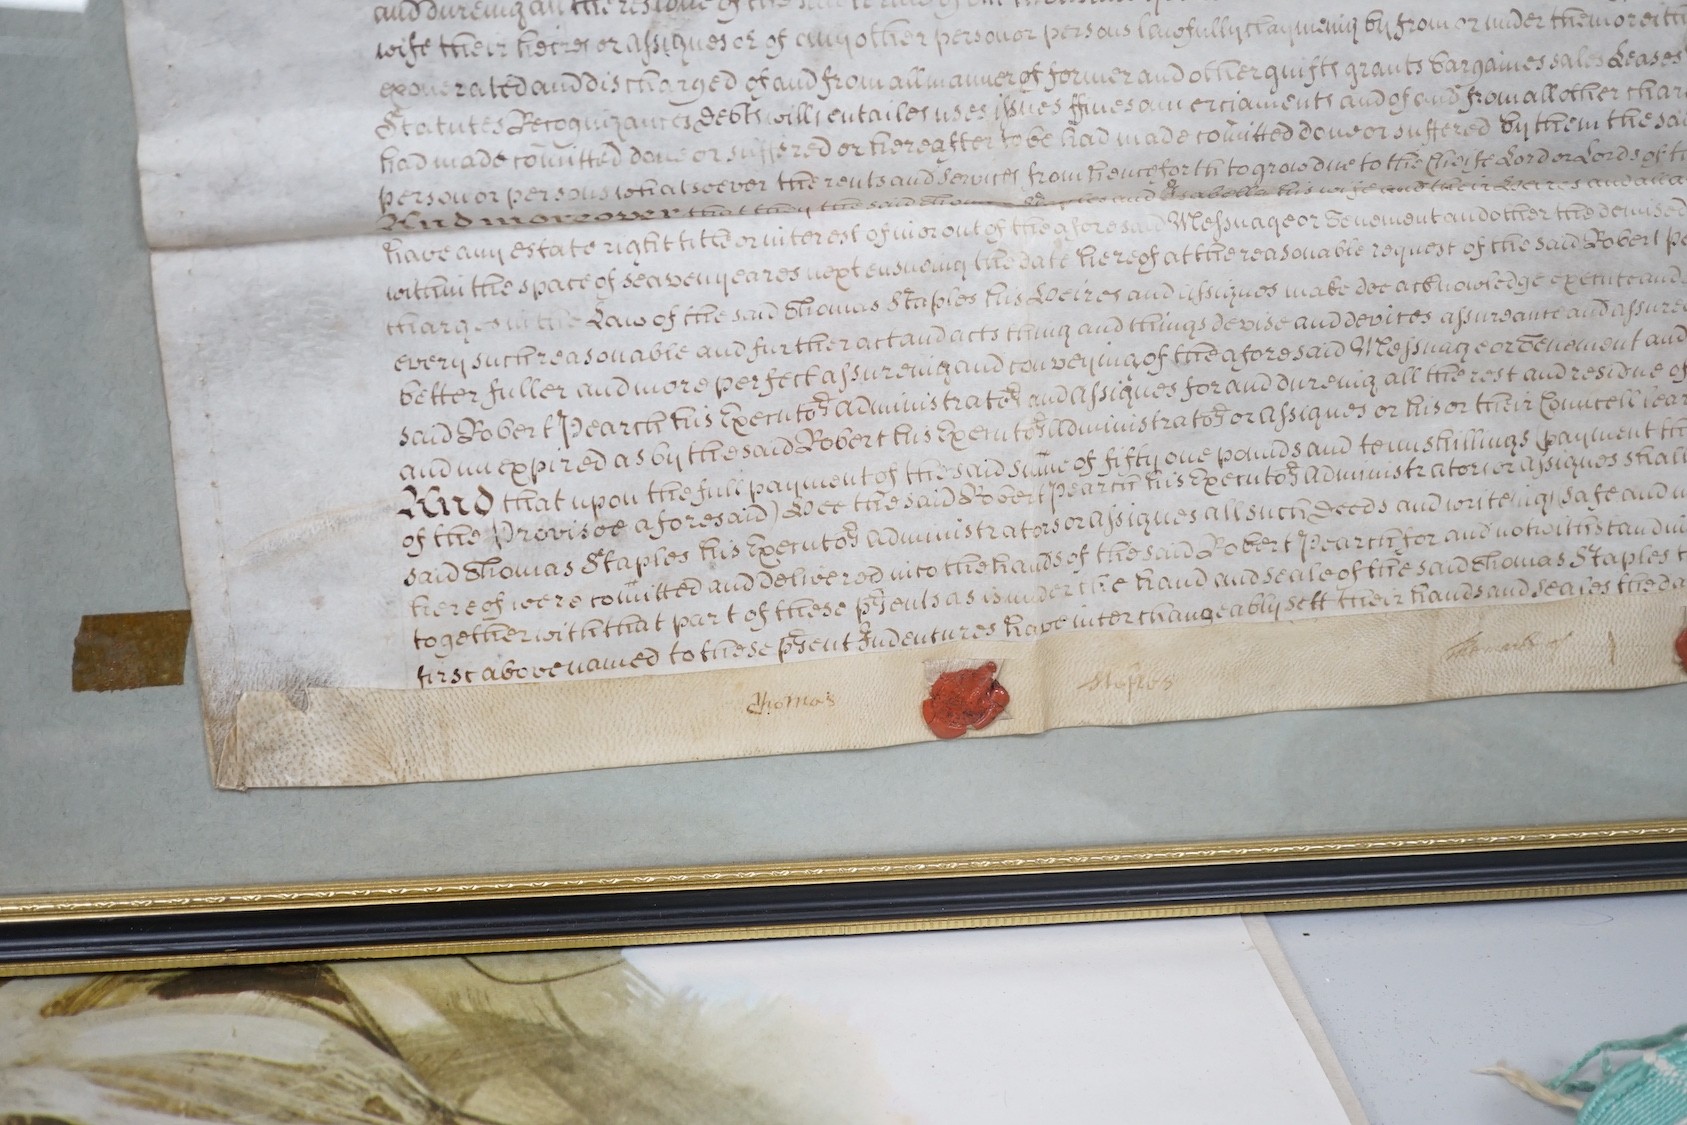 and dureing all the residue of the
wife their heires or assignes or of any other person or persons lawfully claymeing by from or under them or
exonerated and discharged of and from all manner of former and other guifts grants bargaines sales Leases
Statutes Recognizances Debts wills entailes uses issues ffines amerciaments and of and from all other
had made com̄itted done or suffered or hereafter to be had made com̄itted done or suffered by them the said
person or persons whatsoever the rents and services from henceforth to grow due to the Cheife Lord or Lords of
And moreover that they the said Thomas Staples and Isabella his wife and their Heires and all
have any estate right title or interest of in or out of the aforesaid Messuage or Tenement and other the demised
within the space of seaven yeares next ensueing the date hereof at the reasonable request of the said Robert
charges in the Law of the said Thomas Staples his Heires and Assignes make doe acknowledge execute and
every such reasonable and further act and acts thing and things devise and devices assurance and
better fuller and more perfect assureing and conveying of the aforesaid Messuage or Tenement and
said Robert Pearch his Executors Administrators and Assignes for and dureing all the rest and residue of
and unexpired as by the said Robert his Executors Administrators or Assignes or his or their Councell
And that upon the full payment of the said sum̄e of fifty one pounds and tenn shillings
of the Provisoe aforesaid) Hee the said Robert Pearch his Executors Administrators or Assignes shall
said Thomas Staples his Executors Administrators or Assignes all such Deeds and writeings safe and
hereof were com̄itted and delivered into the hands of the said Robert Pearch for and notwithstanding
together with that part of these p̄sents as is under the hand and seale of the said Thomas Staples
first above named to these p̄sent Indentures have interchangeably sett their hands and seales the
Thomas Staples the mark of